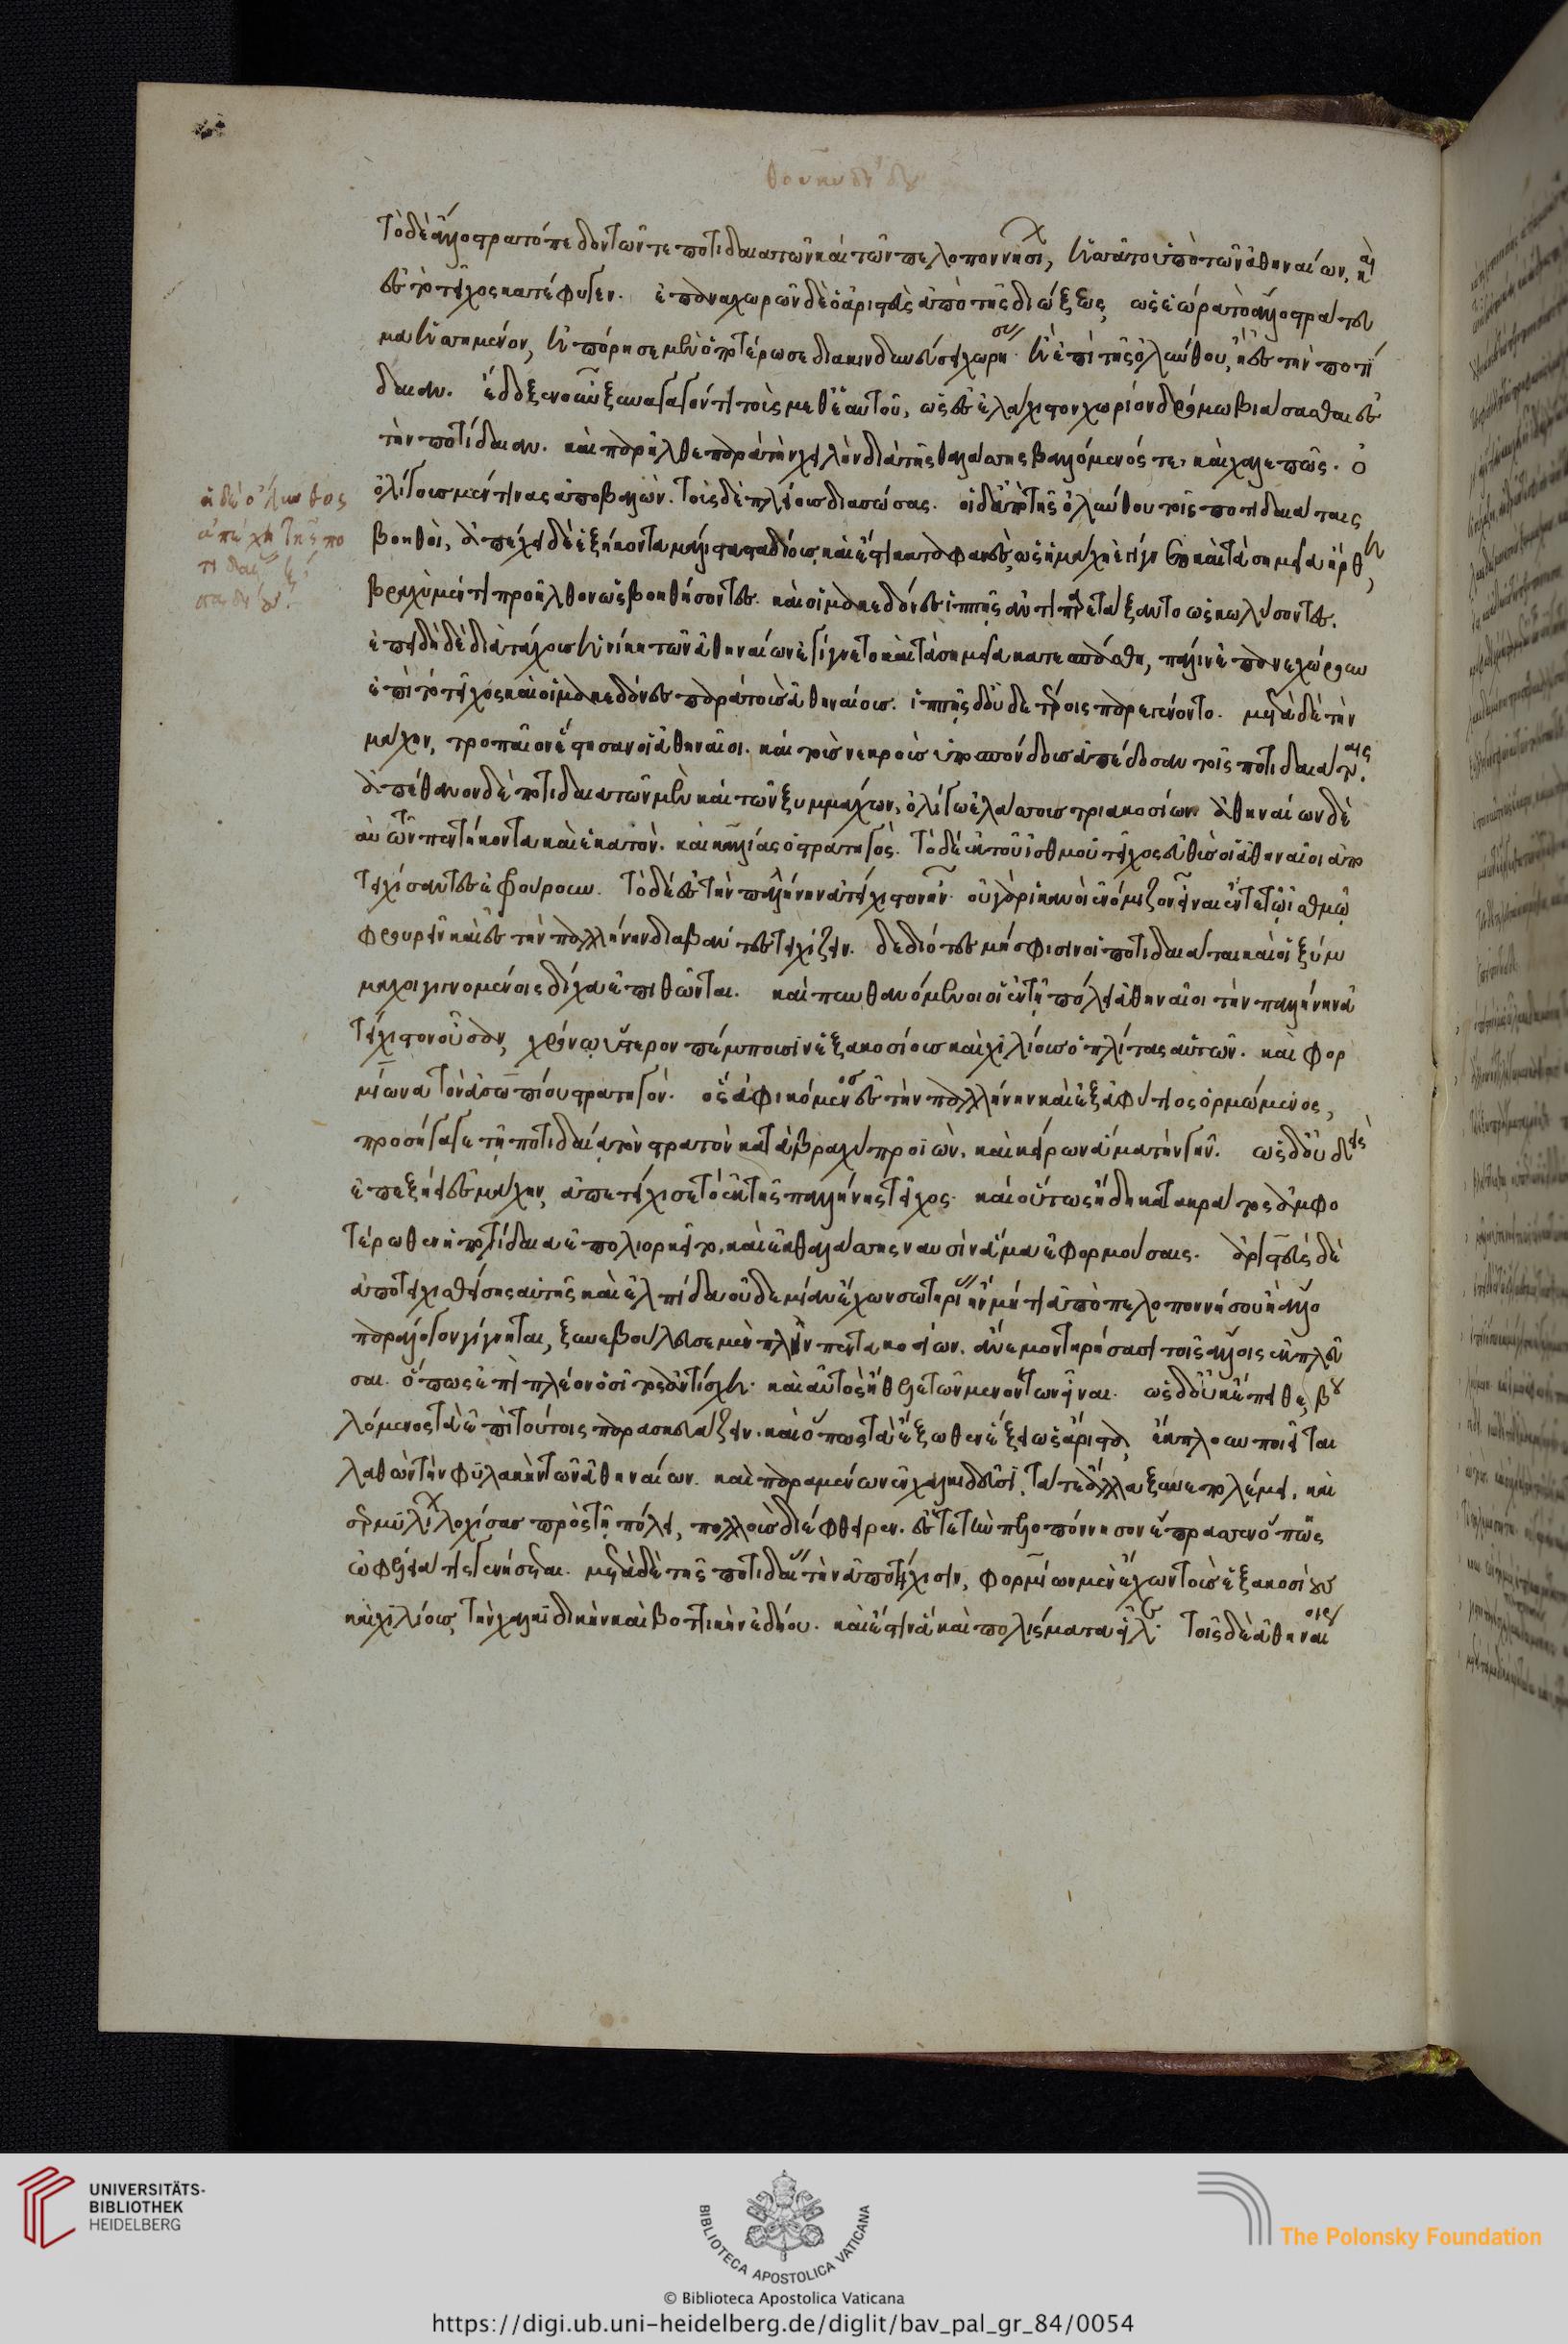 θουκυδίδου
τὸ δὲ ἄλλο στρατόπεδον τῶν τε ποτιδαιατῶν καὶ τῶν πελοποννησί, ἡσσᾶτο ὑπὸ τῶν ἀθηναίων, καὶ
ἐς τὸ τεῖχος κατέφυγεν. ἐπαναχωρῶν δὲ ὁ ἀριστεὺς ἀπὸ τῆς διώξεως, ὡς ἑώρα τὸ ἄλλο στράτευ
μα ἡσσημένον, ἠπόρησε μὲν ὁποτέρωσε διακινδυνεύσει χωρήσας ἢ ἐπὶ τῆς ὀλύνθου, ἢ ἐς τὴν ποτί
δαιαν. ἔδοξε δ' οὖν ξυναγαγόντι τοὺς μεθ' ἑαυτοῦ, ὡς ἐς ἐλάχιστον χωρίον δρόμω βιάσασθαι ἐς
τὴν ποτίδαιαν. καὶ παρῆλθε παρὰ τὴν χηλὴν διὰ τῆς θαλάσσης βαλλόμενός τε, καὶ χαλεπῶς.
ὀλίγους μέν τινας ἀποβαλών. τοὺς δὲ πλείους διασώσας. οἱ δ' ἀπὸ τῆς ὀλύνθου τοῖς ποτιδαιάταις
βοηθοὶ, ἀπέχει δὲ ἑξήκοντα μάλιστα σταδίους, καὶ ἔστι καταφανὲς, ὡς ἡ μάχη ἐγίγνετο καὶ τὰ σημεῖα ἤρθη,
βραχὺ μέν τι προῆλθον ὡς βοηθήσοντες. καὶ οἱ μακεδόνες ἱππῆς ἀντιπαρετάξαντο ὡς κωλύσοντες.
ἐπειδὴ δὲ διὰ τάχους ἡ νίκη τῶν ἀθηναίων ἐγίγνετο καὶ τὰ σημεῖα κατεσπάσθη, πάλιν ἐπανεχώρουν
ἐπὶ τὸ τεῖχος καὶ οἱ μακεδόνες παρὰ τοὺς ἀθηναίους. ἱππῆς δ' οὐδετέροις παρεγένοντο. μετὰ δὲ τὴν
μάχην, τροπαῖον ἔστησαν οἱ ἀθηναῖοι. καὶ τοὺς νεκροὺς ὑποσπόνδους ἀπέδοσαν τοῖς ποτιδαιάταις.
ἀπέθανον δὲ ποτιδαιατῶν μὲν καὶ τῶν ξυμμάχων, ὀλίγω ἐλάσσους τριακοσίων ἀθηναίων δὲ
αὐτῶν πεντήκοντα καὶ ἑκατὸν. καὶ καλλίας ὁ στρατηγός. τὸ δὲ ἐκ τοῦ ἰσθμοῦ τεῖχος εὐθὺς οἱ ἀθηναῖοι ἀπο
τειχίσαντες ἐφρουρουν. τὸ δὲ ἐς τὴν παλλήνην ἀτείχιστον ἦν. οὐ γὰρ ἱκανοὶ ἐνόμιζον εἶναι ἔν τε τῷ ἰσθμῷ
φρουρεῖν καὶ ἐς τὴν παλλήνην διαβάντες τειχίζειν. δεδιότες μὴ σφίσιν οἱ ποτιδαιάται καὶ οἱ ξύμ
μαχοι γινομένοις δίχα ἐπιθῶνται. καὶ πυνθανόμενοι οἱ ἐν τῇ πόλει ἀθηναῖοι τὴν παλλήνην ἀ
τείχιστον οὖσαν, χρόνῳ ὕστερον πέμπουσιν ἑξακοσίους καὶ χιλίους ὁπλίτας αὑτῶν. καὶ φορ
μίωνα τὸν ἀσωπίου στρατηγόν. ὃς ἀφικόμενος ἐς τὴν παλλήνην καὶ ἐξ ἀφύτιος ὁρμώμενος,
προσήγαγε τῇ ποτιδαίᾳ τὸν στρατὸν κατὰ βραχὺ προϊὼν. καὶ κείρων ἅμα τὴν γῆν. ὡς δ' οὐδεὶς
ἐπεξῄει ἐς μάχην, ἀπετείχισε τὸ ἐκ τῆς παλλήνης τεῖχος. καὶ οὕτως ἤδη κατα κράτος ἀμφο
τέρωθεν ἡ ποτίδαια ἐπολιορκεῖτο, καὶ ἐκ θαλάσσης ναυσὶν ἅμα ἐφορμούσαις. ἀριστεὺς δὲ
ἀποτειχισθείσης αὐτῆς καὶ ἐλπίδα οὐδεμίαν ἔχων σωτηρίας ἢν μή τι ἀπὸ πελοποννήσου ἢ ἄλλο
παράλογον γίγνηται, ξυνεβούλευσε μὲν πλὴν πεντακοσίων. ἄνεμον τηρήσασι τοῖς ἄλλοις ἐκπλεῦ
σαι. ὅπως ἐπὶ πλέον ὁ σῖτος ἀντίσχη. καὶ αὐτὸς ἤθελε τῶν μενόντων εἶναι. ὡς δ' οὐκ ἔπειθε, βου
λόμενος τὰ ἐπὶ τούτοις παρασκευάζειν. καὶ ὅπως τὰ ἔξωθεν ἕξει ὡς ἄριστα, ἔκπλουν ποιεῖται
λαθὼν τὴν φυλακὴν τῶν ἀθηναίων. καὶ παραμένων ἐν χαλκιδεῦσι, τά τε ἄλλα ξυνεπολέμει, καὶ
σερμυλί λοχίσας πρὸς τῇ πόλει, πολλοὺς διέφθειρεν. ἔς τε τὴν πελοπόννησον ἔπρασσεν ὅπως
ὠφέλειά τις γενήσεται. μετὰ δὲ τῆς ποτιδαίας τὴν ἀποτείχισιν, φορμίων μὲν ἔχων τοὺς ἑξακοσίους
καὶ χιλίους, τὴν χαλκιδικὴν καὶ βοττικὴν ἐδῄου. καὶ ἔστιν ἃ καὶ πολίσματα εἷλε. τοῖς δὲ ἀθηναίοις
ἡ δὲ ὄλυνθος
ἀπέχει τῆς πο
τιδαίας ξ'
σταδίους.
UNIVERSITÄTS-
BIBLIOTHEK
HEIDELBERG
BIBLIOTECA APOSTOLICA VATICANA
The Polonsky Foundation
© Biblioteca Apostolica Vaticana
https://digi.ub.uni-heidelberg.de/diglit/bav_pal_gr_84/0054